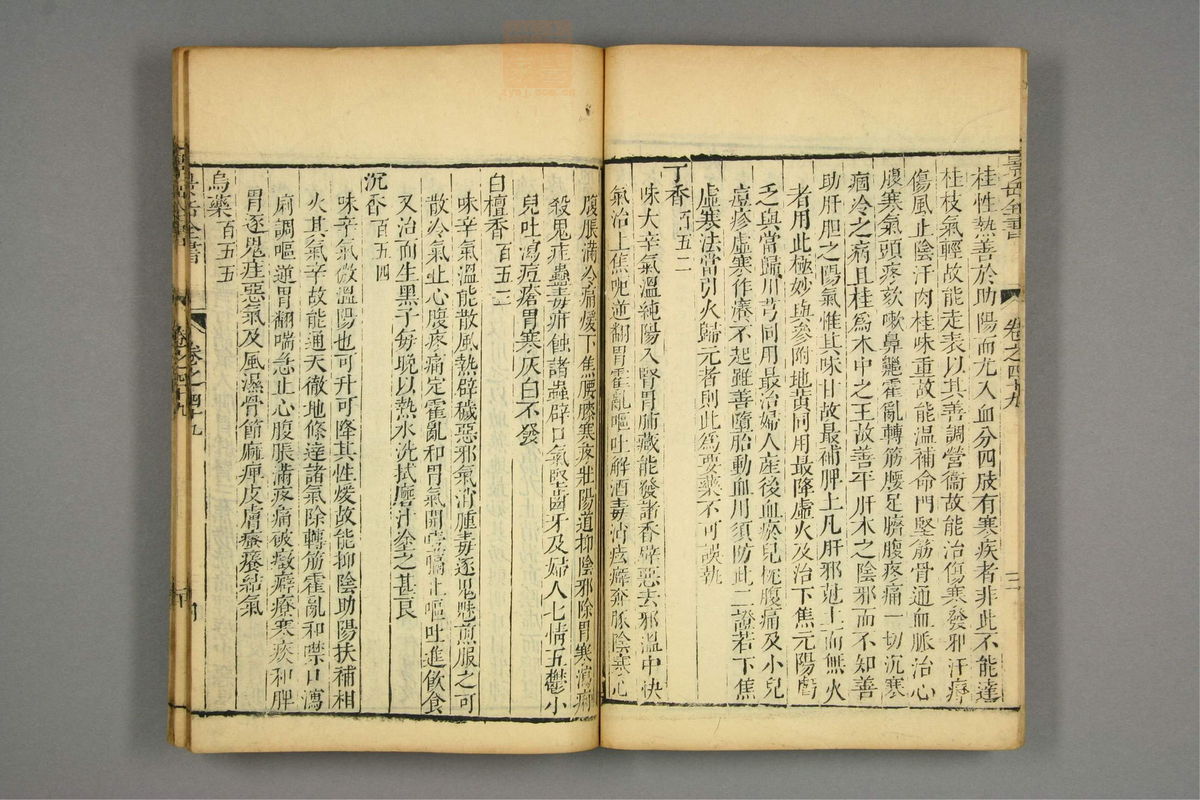 景岳全書 卷之四十九 三
桂性熱善於助陽而尤入血分四肢有寒疾者非此不能達
桂枝氣輕故能走表以其善調營衛故能治傷寒發邪汗療
傷風止陰汗肉桂味重故能温補命門堅筋骨通血脈治心
腹寒氣頭疼欬嗽鼻齆霍亂轉筋腰足臍腹疼痛一切沉寒
痼冷之病且桂為木中之王故善平肝木之陰邪而不知善
助肝胆之陽氣惟其味甘故最補脾土凡肝邪尅土而無火
者用此極妙與參附地黃同用最降虛火及治下焦元陽虧
乏與當歸川芎同用最治婦人產後血瘀兒枕腹痛及小兒
痘疹虛寒作癢不起雖善墮胎動血用須防此二證若下焦
虛寒法當引火歸元者則此為要藥不可誤執
丁香百五二
味大辛氣溫純陽入腎胃肺臟能發諸香辟惡去邪溫中快
氣治上焦呃逆翻胃霍亂嘔吐解酒毒消痃癖奔豚陰寒心
腹脹滿冷痛煖下焦腰膝寒疼壯陽道抑陰邪除胃寒瀉痢
殺鬼疰蠱毒疳蝕諸蟲辟口氣堅齒牙及婦人七情五鬱小
兒吐瀉痘瘡胃寒灰白不發
白檀香百五三
味辛氣溫能散風熱辟穢惡邪氣消腫毒逐鬼魅煎服之可
散冷氣止心腹疼痛定霍亂和胃氣開噎膈止嘔吐進飲食
又治面生黑子每晚以熱水洗拭磨汁塗之甚良
沉香百五四
味辛氣微溫陽也可升可降其性煖故能抑陰助陽扶補相
火其氣辛故能通天徹地條達諸氣除轉筋霍亂和噤口瀉
痢調嘔逆胃翻喘急止心腹脹滿疼痛破癥癖療寒痰和脾
胃逐鬼疰惡氣及風濕骨節麻痺皮膚瘙癢結氣
烏藥百五五
景岳全書 卷之四十九